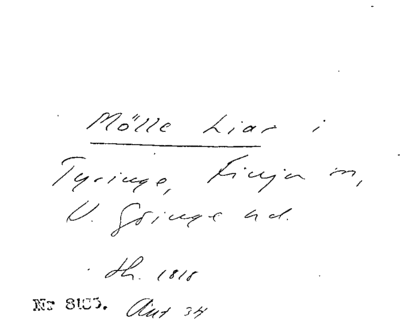 Mölle Lias i
Tyringe, Finja sn,
V. Göinge hd.
th. 1818
Nr 8135. Aut 34